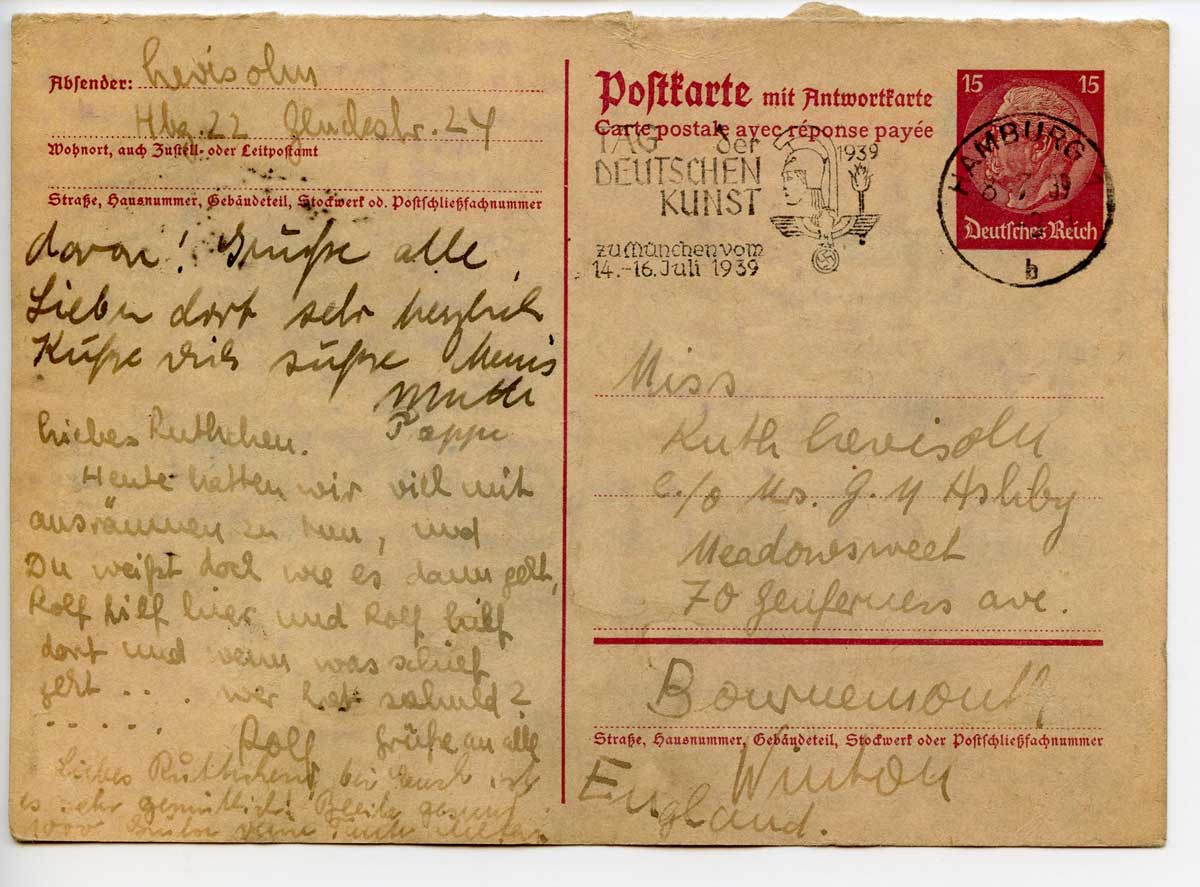 Absender: Levisohn
Hbg. 22
Wohnort, auch Zustell- oder Leitpostamt
Straße, Hausnummer, Gebäudeteil, Stockwerk od. Postschließfachnummer
davon! Grüße alle
Lieben dort sehr herzlich
Küsse Dich
Mutti
Pappi
Liebes Ruthchen.
Heute hatten wir viel mit
ausräumen zu tun, und
Du weißt doch wie es dann geht,
Rolf hilf hier und Rolf hilf
dort und wenn was schief
geht . . . wer hat schuld?
. . . . . .
Rolf Grüße an alle
Liebes Ruthchen, bei Euch ist
es sehr gemütlich! Bleibe gesund
1000
Postkarte mit Antwortkarte
Carte postale avec réponse payée
15 15
Deutsches Reich
HAMBURG 1
39
b
TAG der
DEUTSCHEN
KUNST
1939
zu München vom
14.-16. Juli 1939
Miss
Ruth Levisohn
c./o Mrs. G. M Ashby
Meadowsweet
70 ave.
Bournemouth
Straße, Hausnummer, Gebäudeteil, Stockwerk oder Postschließfachnummer
Winton
England.